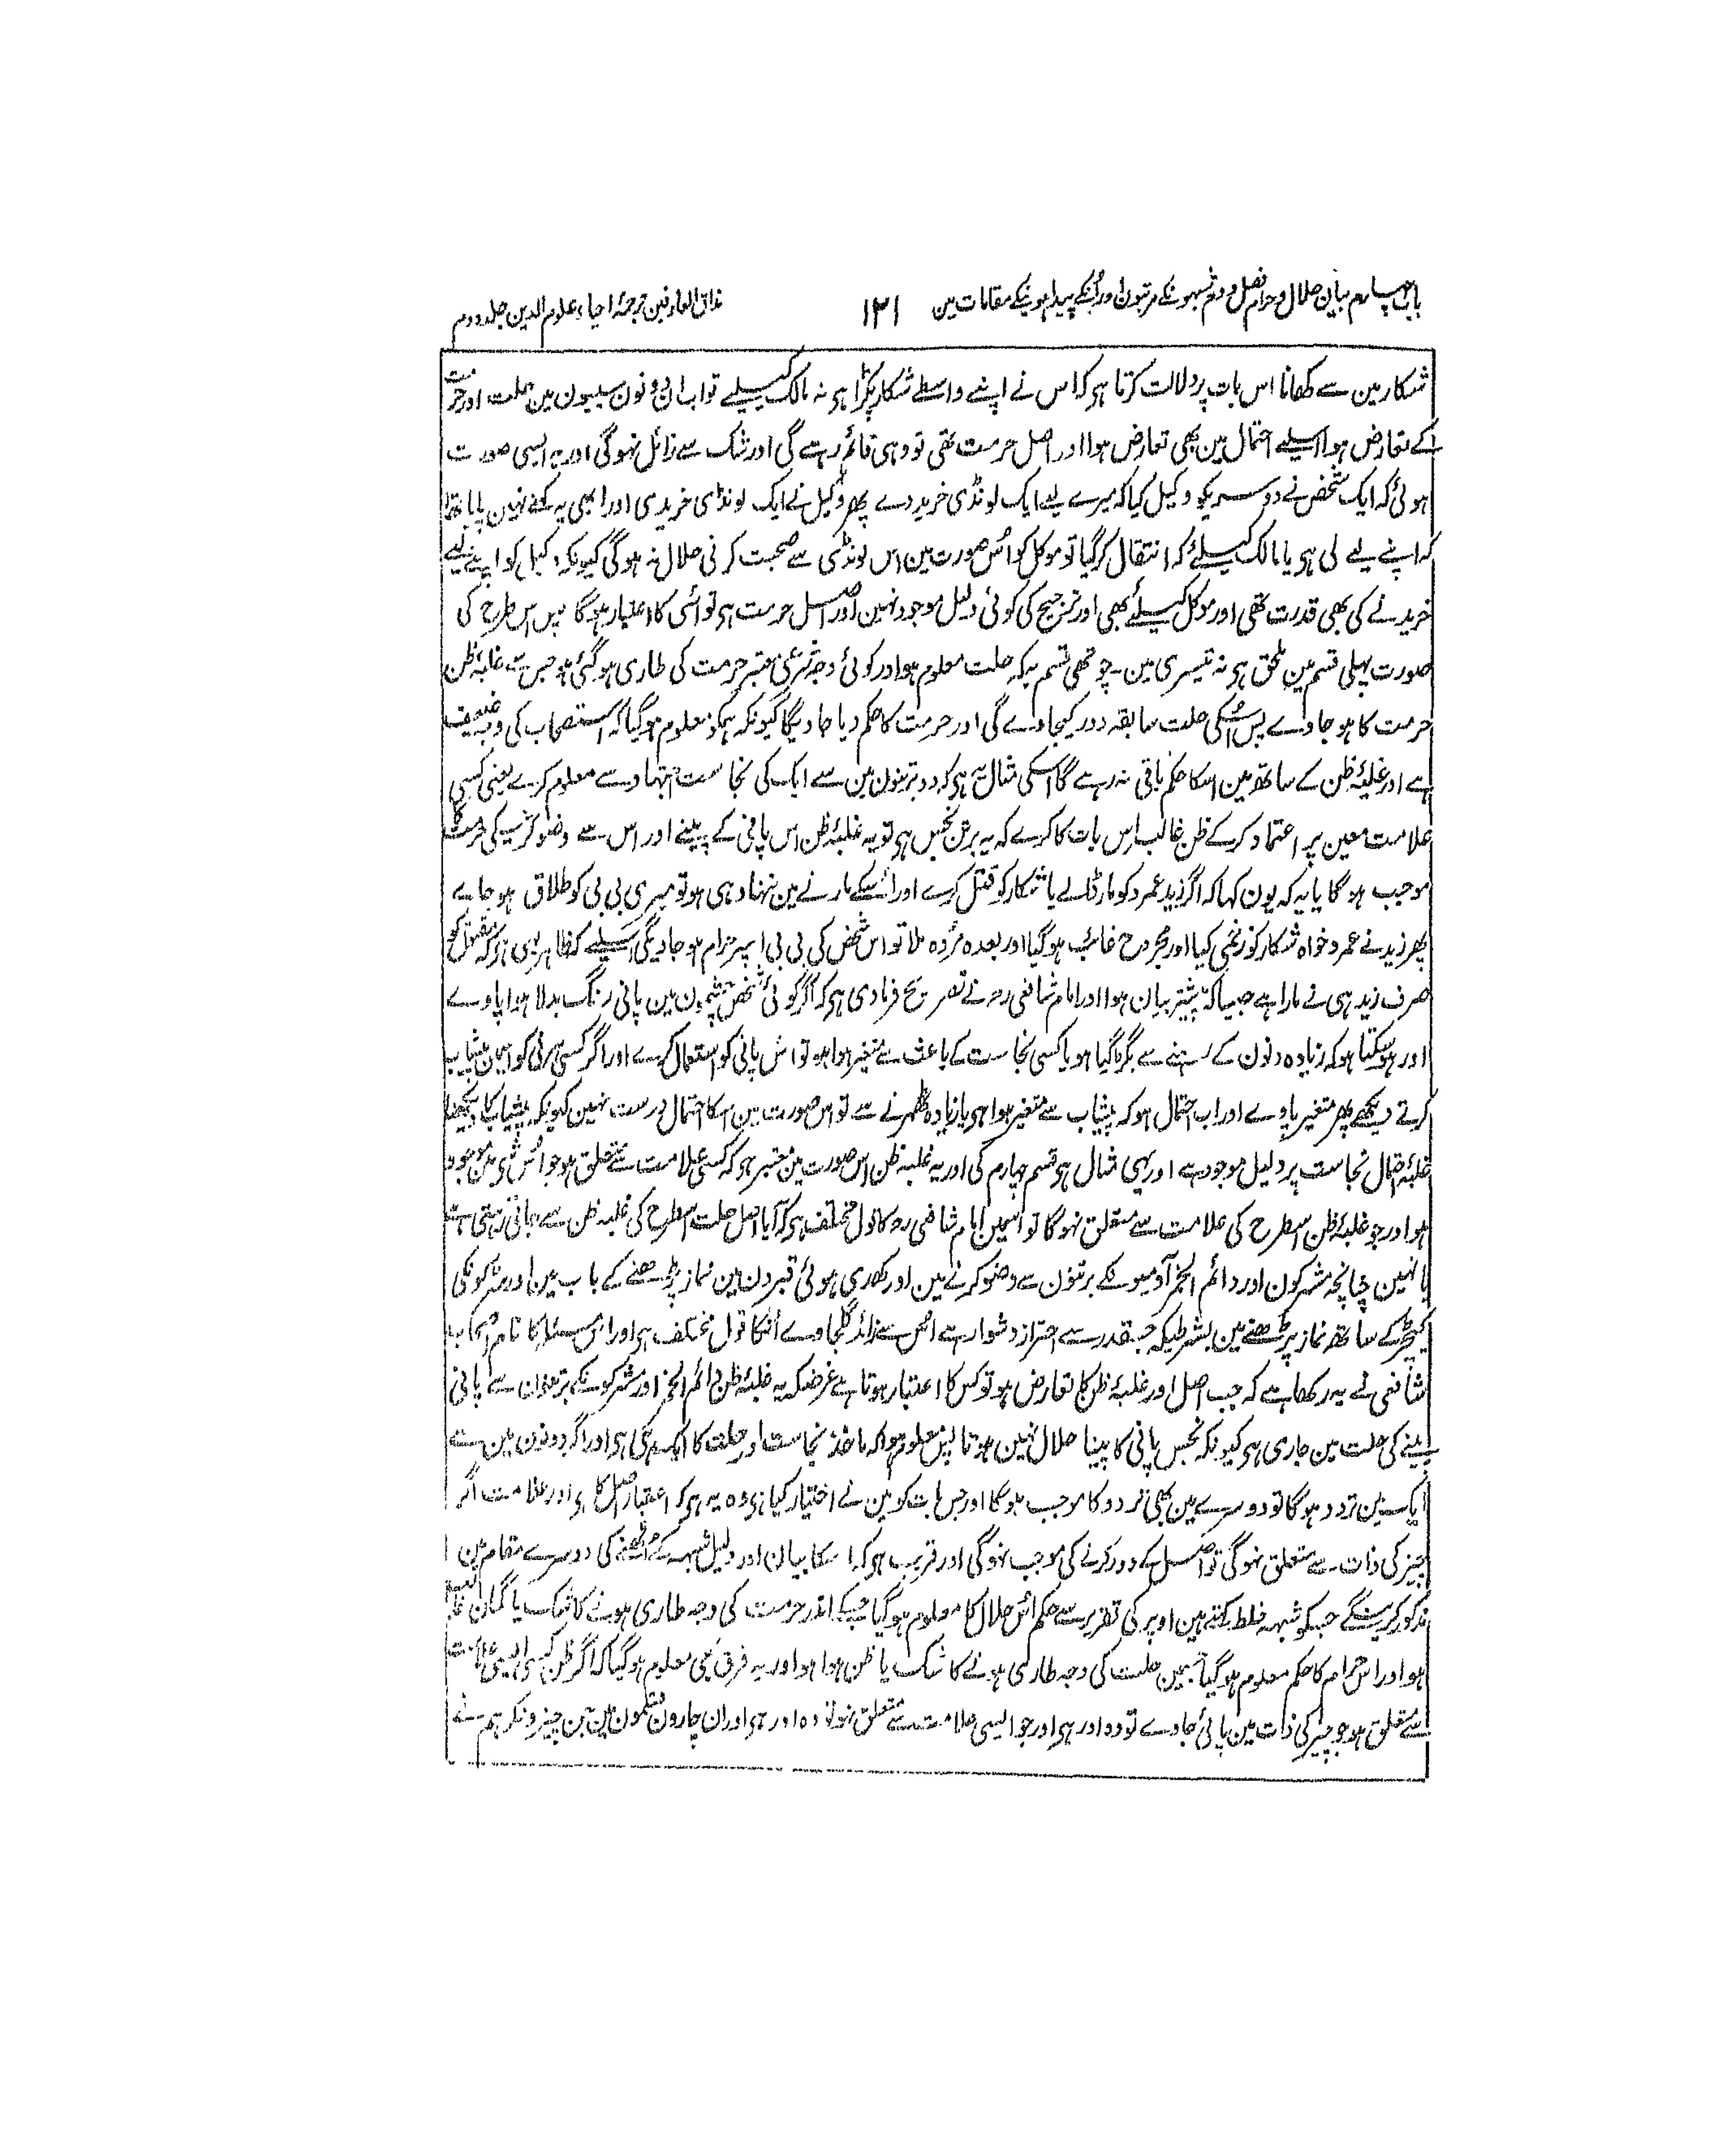 باب چہارم بیان حلال و حرام فصل دوم شبہونکے مرتبون اور اُنکے پیدا ہونیکے مقامات مین ۱۲۱ مذاق العارفین ترجمۂ احیاء علوم الدین جلد دوم
شکار مین سے کھانا اس بات پر دلالت کرتا ہی کہ اس نے اپنے واسطے شکار پکڑا ہی نہ مالک کیلیے تو اب ان دونون سببون مین حلت اور حرمت
کے تعارض ہوا اسلیے احتمال مین بھی تعارض ہوا اور اصل حرمت تھی تو وہی قائم رہے گی اور شک سے زائل نہوگی اور یہ ایسی صورت
ہوئی کہ ایک شخص نے دوسریکو وکیل کیا کہ میرے لیے ایک لونڈی خرید دے پھر وکیل نے ایک لونڈی خریدی اور ابھی یہ کہنے نہین پایا تھا
کہ اپنے لیے لی ہی یا مالک کیلئے کہ انتقال کر گیا تو موکل کو اُس صورت مین اس لونڈی سے صحبت کرنی حلال نہ ہوگی کیونکہ وکیل کو اپنے لیے
خریدنے کی بھی قدرت تھی اور موکل کیلئے بھی اور ترجیح کی کوئی دلیل موجود نہین اور اصل حرمت ہی تو اسی کا اعتبار ہوگا پس اس طرح کی
صورت پہلی قسم مین ملحق ہی نہ تیسری مین ۔ چوتھی قسم یہکہ حلت معلوم ہو اور کوئی وجہ شرعی معتبر حرمت کی طاری ہو گئی ہو جس سے غلبۂ ظن
حرمت کا ہو جاوے پس اُسکی حلت سابقہ دور کیجاوے گی اور حرمت کا حکم دیا جاویگا کیونکہ ہمکو معلوم ہو گیا کہ استصحاب کی وجہ ضعیف
ہے اور غلبۂ ظن کے ساتھ مین اسکا حکم باقی نہ رہے گا اسکی مثال یہ ہی کہ دو برتنون مین سے ایک کی نجاست اجتہاد سے معلوم کرے یعنی کسی
علامت معین پر اعتماد کرکے ظن غالب اس بات کا کرے کہ یہ برتن نجس ہی تو یہ غلبۂ ظن اس پانی کے پینے اور اس سے وضو کرنیکی حرمت کا
موجب ہو گا یا یہ کہ یون کہا کہ اگر زید عمرو کو مار ڈالے یا شکار کو قتل کرے اور اُسکے مارنے مین تنہا وہی ہو تو میری بی بی کو طلاق ہو جاے
پھر زید نے عمرو خواہ شکار کو زخمی کیا اور مجروح غائب ہو گیا اور بعدہ مُردہ ملا تو اس شخص کی بی بی اسپر حرام ہو جاویگی اسلیے کہ ظاہر یہی ہی کہ مقتول کو
صرف زید ہی نے مارا ہے جیسا کہ پیشتر بیان ہوا اور امام شافعی رہ نے تصریح فرمادی ہی کہ اگر کوئی شخص چشمون مین پانی رنگ بدلا ہوا پاوے
اور ہو سکتا ہو کہ زیادہ دنون کے رہنے سے بگڑ گیا ہو یا کسی نجاست کے باعث سے متغیر ہوا ہو تو اس پانی کو استعمال کرے اور اگر کسی ہرنی کو اسمین پیشاب
کرتے دیکھے پھر متغیر پاوے اور اب احتمال ہو کہ پیشاب سے متغیر ہوا ہی یا زیادہ ٹھہرنے سے تو اس صورت مین اسکا استعمال درست نہین کیونکہ پیشاب کا دیکھنا
غلبۂ احتمال نجاست پر دلیل موجود ہے اور یہی مثال ہی قسم چہارم کی اور یہ غلبۂ ظن اس صورت مین معتبر ہی کہ کسی علامت سے متعلق ہو جو اُس شی مین موجود
ہو اور جو غلبۂ ظن اسطرح کی علامت سے متعلق نہوگا تو اسمین امام شافعی رہ کا قول مختلف ہی کہ آیا اصل حلت اسطرح کی غلبۂ ظن سے جاتی رہتی ہے
یا نہین چنانچہ مشرکون اور دائم الخمر آدمیونکے برتنون سے وضو کرنے مین اور کھدی ہوئی قبرون مین نماز پڑھنے کے باب مین اور سڑکونکی
کیچڑ کے ساتھ نماز پڑھنے مین بشرطیکہ جسقدر سے احتراز دشوار ہے اُس سے زائد لگجاوے اُنکا قول مختلف ہی اور اس مسئلہ کا نام اصحاب
شافعی نے یہ رکھا ہے کہ جب اصل اور غلبۂ ظن کا تعارض ہو تو کس کا اعتبار ہوتا ہے غرضکہ یہ غلبۂ ظن دائم الخمر اور مشرکونکے برتنون سے پانی
پینے کی حلت مین جاری ہی کیونکہ نجس پانی کا پینا حلال نہین ہوتا پس معلوم ہوا کہ ماخذ نجاست اور حلت کا ایک ہی ہی اور اگر دونون مین سے
ایک مین تردد ہوگا تو دوسرے مین بھی تردد کا موجب ہوگا اور جس بات کو مین نے اختیار کیا ہی وہ یہ ہی کہ اعتبار اصل کا ہی اور علامت اگر
چیز کی ذات سے متعلق نہوگی تو اصل کے دور کرنے کی موجب نہوگی اور قریب ہو کہ اسکا بیان اور دلیل شبہہ کے اُٹھنے کی دوسرے مقام مین
مذکور کرینگے جسکو شبہہ خلط کہتے ہین اوپر کی تقریر سے حکم اُس حلال کا معلوم ہو گیا جسکے اندر حرمت کی وجہ طاری ہونے کا شک یا گمان غالب
ہو اور اس حرام کا حکم معلوم ہو گیا جسمین حلت کی وجہ طاری ہونے کا شک یا ظن ہوا ہو اور یہ فرق بھی معلوم ہو گیا کہ اگر ظن کسی ایسی علامت
سے متعلق ہو جو چیز کی ذات مین پائی جاوے تو وہ اور ہی اور جو ایسی علامت سے متعلق نہو تو وہ اور ہی اور ان چارون قسمون مین جن چیزونکو ہم نے